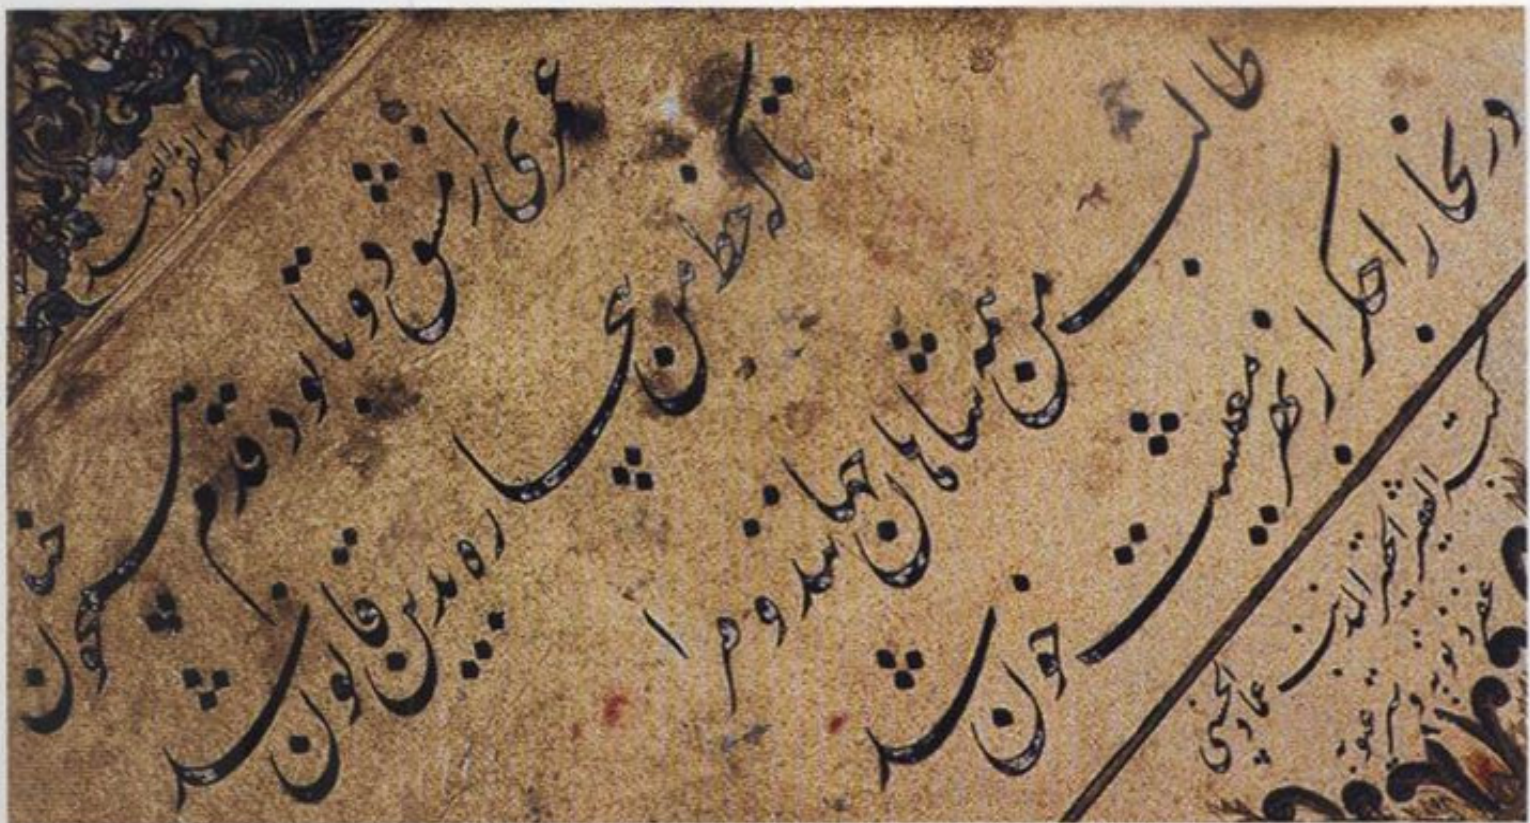 عمری از مشق دو تا بود قدم همچون چنگ
تا که خط من بیچاره بدین قانون شد
طالب من همه شاهان جهانند و مرا
در بخارا جگر از بهر معیشت خون شد
الفقیر الحقیر المذنب
عماد الحسنی
غفر ذنوبه